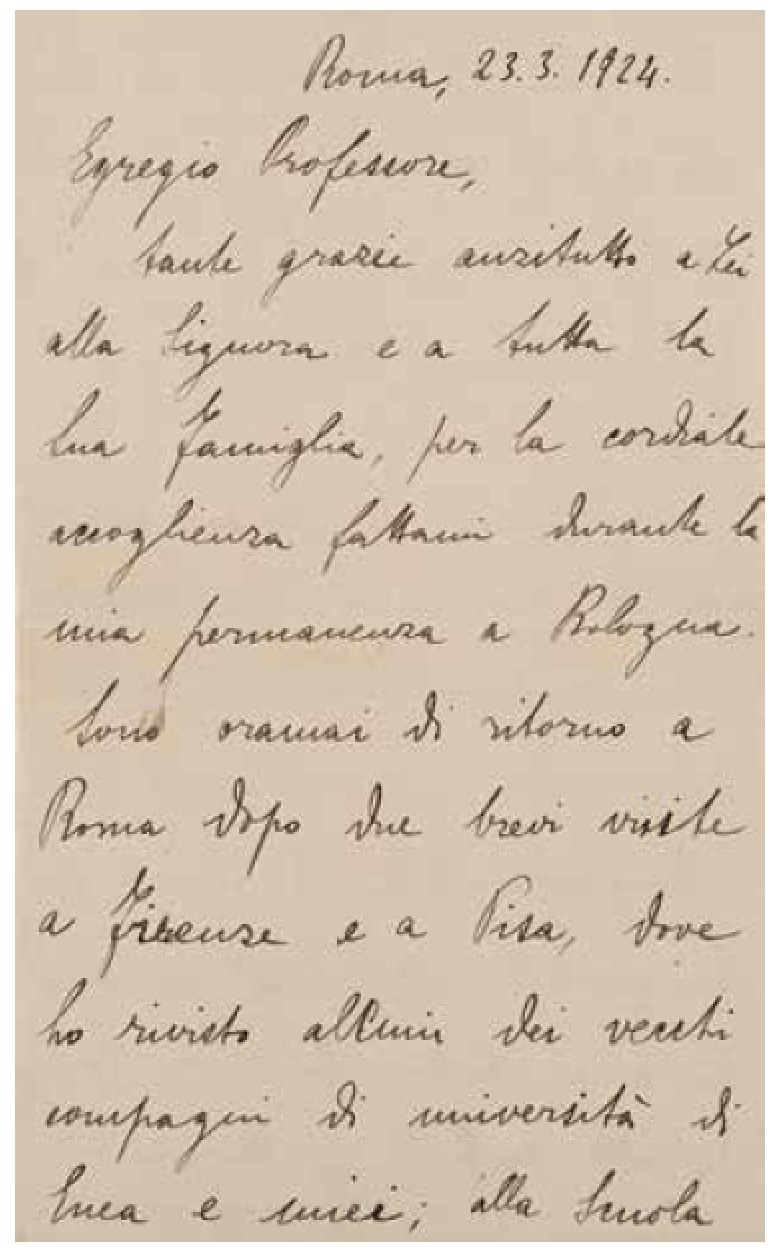 Roma, 23.3.1924.
Egregio Professore,
tante grazie anzitutto a Lei
alla Signora e a tutta la
Sua Famiglia, per la cordiale
accoglienza fattami durante la
mia permanenza a Bologna.
Sono oramai di ritorno a
Roma dopo due brevi visite
a Firenze e a Pisa, dove
ho rivisto alcuni dei vecchi
compagni di università di
Enea e miei; alla Scuola